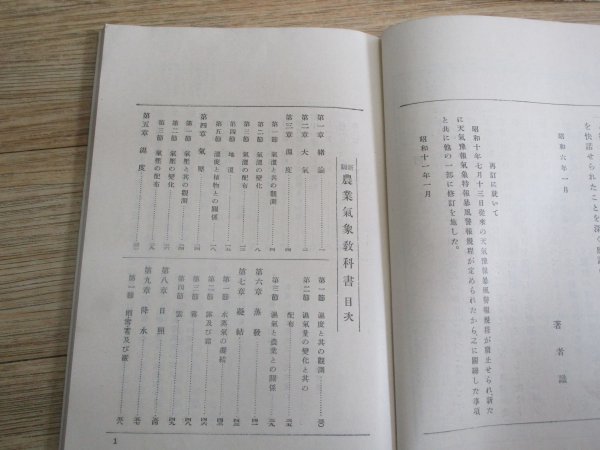 を快諾せられたことを深く
昭和六年一月
著者識
再訂に就いて
昭和十年七月十三日從來の天氣豫報氣象特報暴風警報規程が廢止せられ新た
に天氣豫報氣象特報暴風警報規程が定められたから之に關聯した事項
と共に他の一部に修訂を施した。
昭和十一年一月
農業氣象教科書 目次
第一章 緒論
第二章 大氣
第三章 溫度
第一節 氣溫と其の觀測
第二節 氣溫の變化
第三節 氣溫の配布
第四節 地溫
第五節 溫度と植物との關係
第四章 氣壓
第一節 氣壓と其の觀測
第二節 氣壓の變化
第三節 氣壓の配布
第五章 濕度
第一節 濕度と其の觀測
第二節 濕氣量の變化と其の
配布
第三節 濕氣と農業との關係
第六章 蒸發
第七章 凝結
第一節 水蒸氣の凝結
第二節 露及び霜
第三節 霧
第四節 雲
第八章 日照
第九章 降水
第一節 雨雪雹及び霰
1